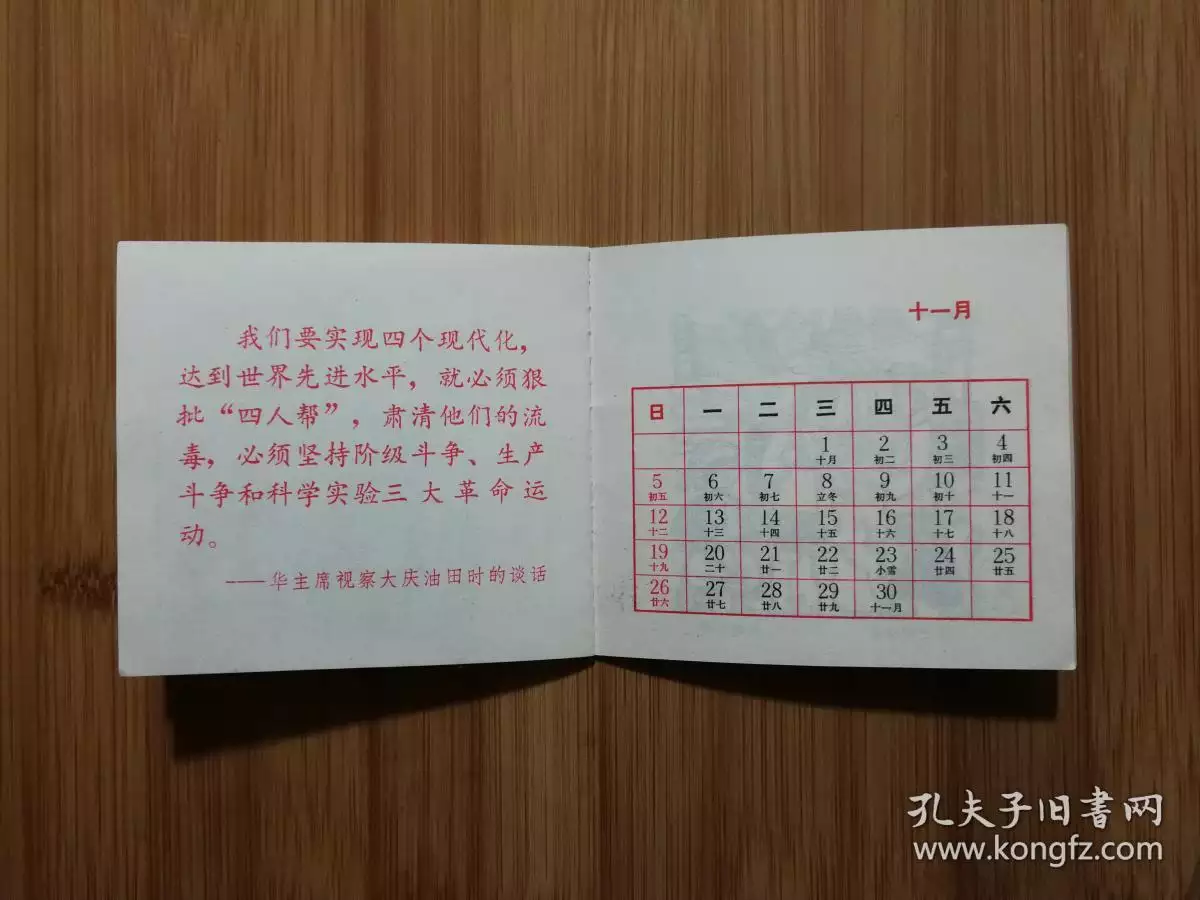 我们要实现四个现代化，
达到世界先进水平，就必须狠
批“四人帮”，肃清他们的流
毒，必须坚持阶级斗争、生产
斗争和科学实验三大革命运
动。
——华主席视察大庆油田时的谈话
十一月
日 一 二 三 四 五 六
1 2 3 4
十月 初二 初三 初四
5 6 7 8 9 10 11
初五 初六 初七 立冬 初九 初十 十一
12 13 14 15 16 17 18
十二 十三 十四 十五 十六 十七 十八
19 20 21 22 23 24 25
十九 二十 廿一 廿二 小雪 廿四 廿五
26 27 28 29 30
廿六 廿七 廿八 廿九 十一月
孔夫子旧书网
www.kongfz.com